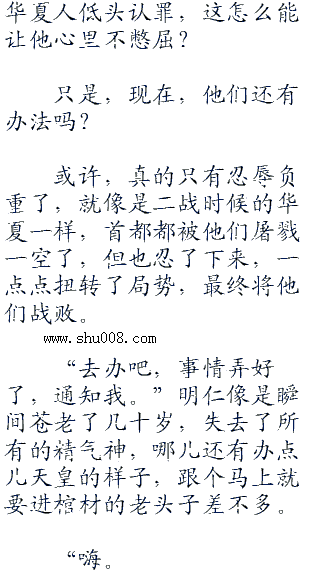 华夏人低头认罪，这怎么能
让他心里不憋屈？
只是，现在，他们还有
办法吗？
或许，真的只有忍辱负
重了，就像是二战时候的华
夏一样，首都都被他们屠戮
一空了，但也忍了下来，一
点点扭转了局势，最终将他
们战败。
www.shu008.com
“去办吧，事情弄好
了，通知我。”明仁像是瞬
间苍老了几十岁，失去了所
有的精气神，哪儿还有办点
儿天皇的样子，跟个马上就
要进棺材的老头子差不多。
“嗨。